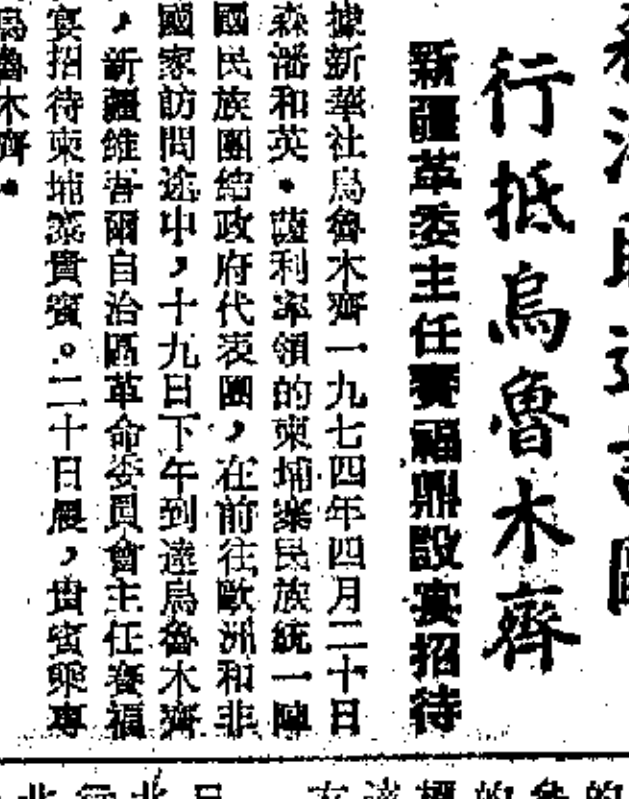 行抵烏魯木齊
新疆革委主任賽福鼎設宴招待
據新華社烏魯木齊一九七四年四月二十日
森潘和英·薩利率領的柬埔寨民族統一陣
國民族團結政府代表團，在前往歐洲和非
國家訪問途中，十九日下午到達烏魯木齊
，新疆維吾爾自治區革命委員會主任賽福
宴招待柬埔寨貴賓。二十日晨，貴賓乘專
烏魯木齊。